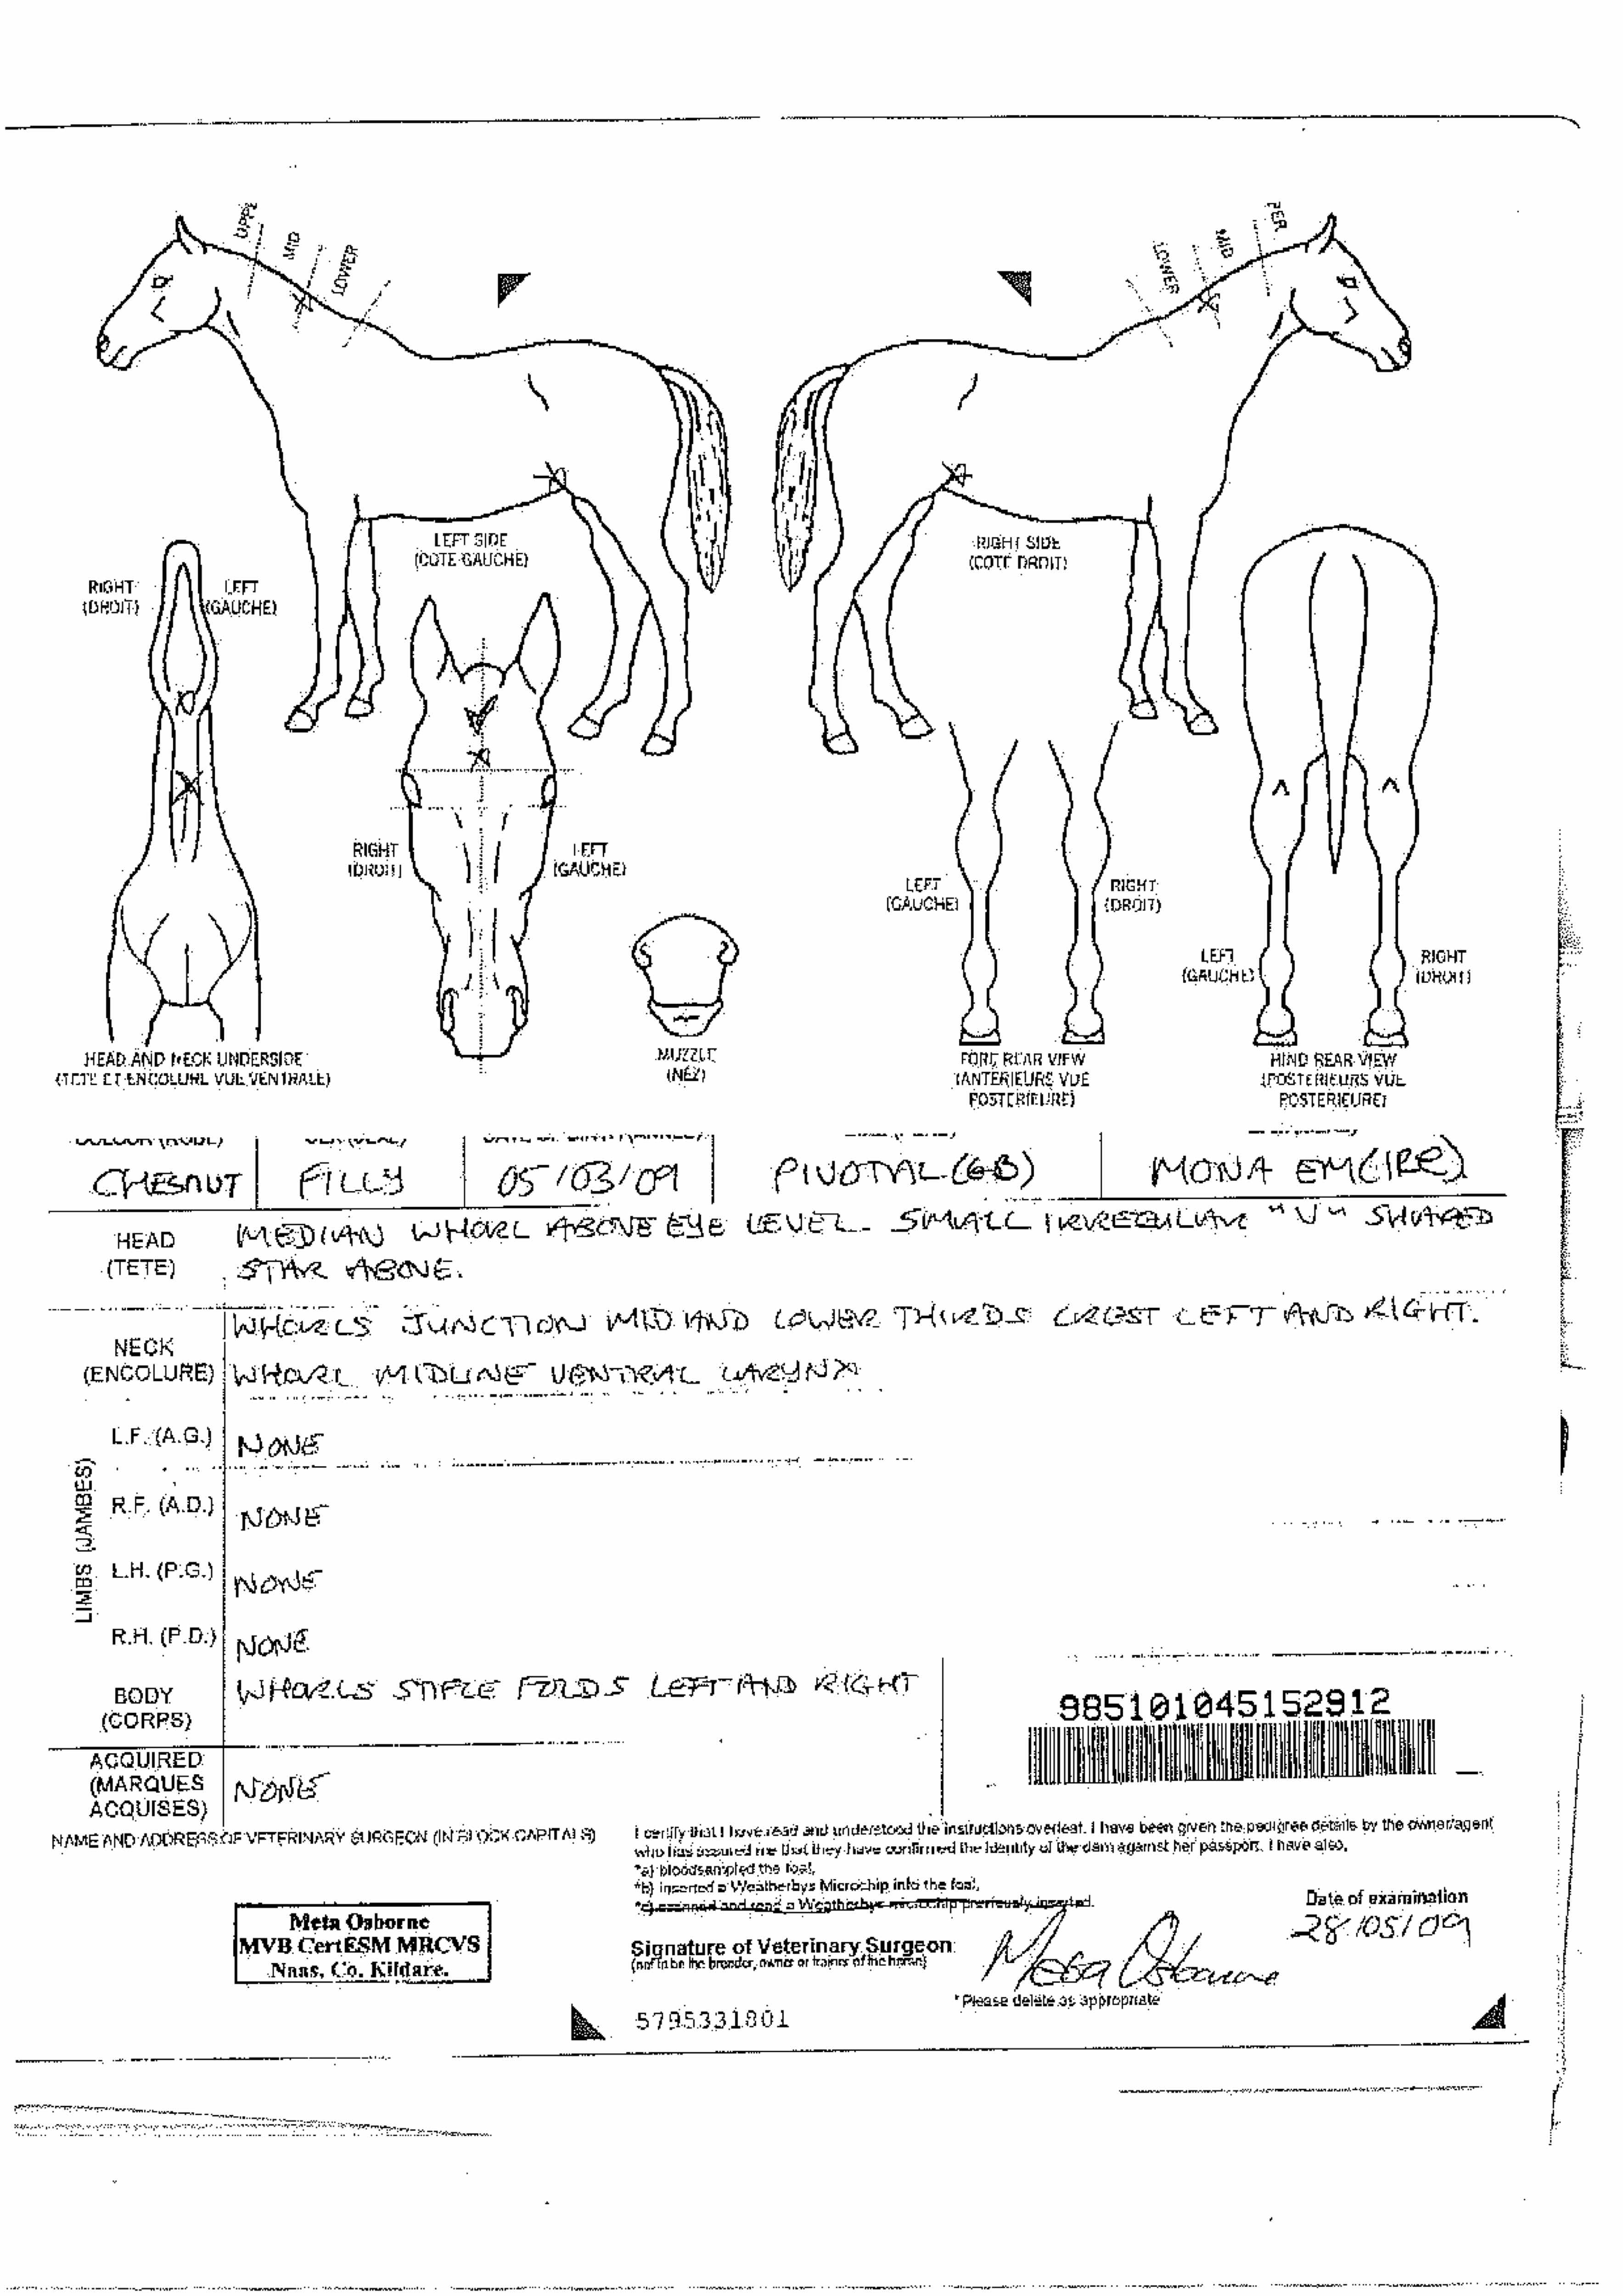 UPPE
MID
LOWER
LOWER
MID
PER
LEFT SIDE
(COTE GAUCHE)
RIGHT SIDE
(COTE DROIT)
RIGHT
(DROIT)
LEFT
(GAUCHE)
RIGHT
(DROIT)
LEFT
(GAUCHE)
LEFT
(GAUCHE)
RIGHT
(DROIT)
LEFT
(GAUCHE)
RIGHT
(DROIT)
HEAD AND NECK UNDERSIDE
(TETE ET ENCOLURE VUE VENTRALE)
MUZZLE
(NEZ)
FORE REAR VIEW
(ANTERIEURS VUE
POSTERIEURE)
HIND REAR VIEW
(POSTERIEURS VUE
POSTERIEURE)
CHESNUT FILLY 05/03/09 PIVOTAL (GB) MONA EM (IRE)
HEAD
(TETE)
MEDIAN WHORL ABOVE EYE LEVEL. SMALL IRREGULAR "V" SHAPED
STAR ABOVE.
NECK
(ENCOLURE)
WHORLS JUNCTION MID AND LOWER THIRDS CREST LEFT AND RIGHT.
WHORL MIDLINE VENTRAL LARYNX
LIMBS (JAMBES)
L.F. (A.G.) NONE
R.F. (A.D.) NONE
L.H. (P.G.) NONE
R.H. (P.D.) NONE
BODY
(CORPS)
WHORLS STIFLE FOLDS LEFT AND RIGHT
985101045152912
ACQUIRED
(MARQUES
ACQUISES)
NONE
NAME AND ADDRESS OF VETERINARY SURGEON (IN BLOCK CAPITALS)
I certify that I have read and understood the instructions overleaf. I have been given the pedigree details by the owner/agent
who has assured me that they have confirmed the identity of the dam against her passport. I have also,
*a) bloodsampled the foal,
*b) inserted a Weatherbys Microchip into the foal,
*c) scanned and read a Weatherbys microchip previously inserted.
Date of examination
28/05/09
Meta Osborne
MVB CertESM MRCVS
Naas, Co. Kildare.
Signature of Veterinary Surgeon
(not to be the breeder, owner or trainer of the horse)
Meta Osborne
* Please delete as appropriate
5795331801